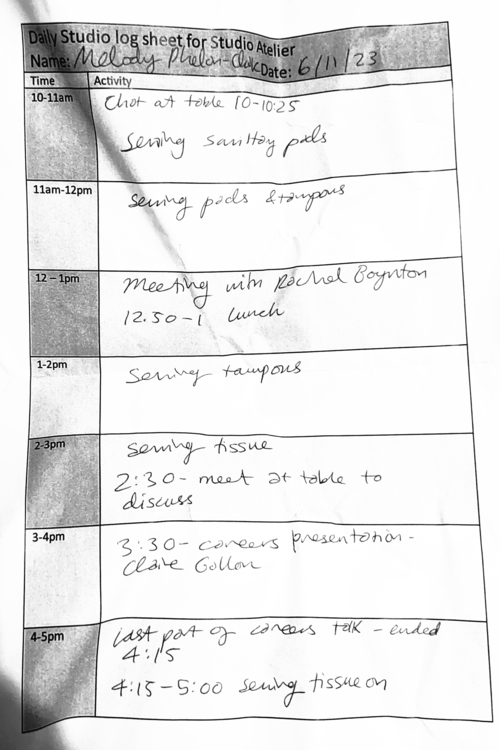 Daily Studio log sheet for Studio Atelier
Name: Melody Phelan-Clark Date: 6/11/23
Time Activity
10-11am
Chat at table 10-10:25
Sewing sanitay pads
11am-12pm
sewing pads & tampons
12 – 1pm
Meeting with Rachel Boynton
12.50-1 lunch
1-2pm
Sewing tampons
2-3pm
sewing tissue
2:30- meet at table to
discuss
3-4pm
3:30- careers presentation -
Claire Gollon
4-5pm
Last part of careers talk - ended
4:15
4:15-5:00 sewing tissue on